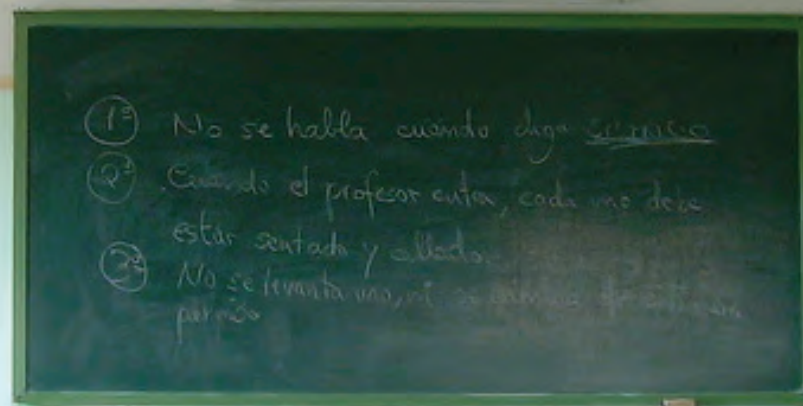 1º No se habla cuando diga SILENCIO
2º Cuando el profesor entra, cada uno debe
estar sentado y callado.
3º No se levanta uno, ni se cambia de sitio sin
permiso